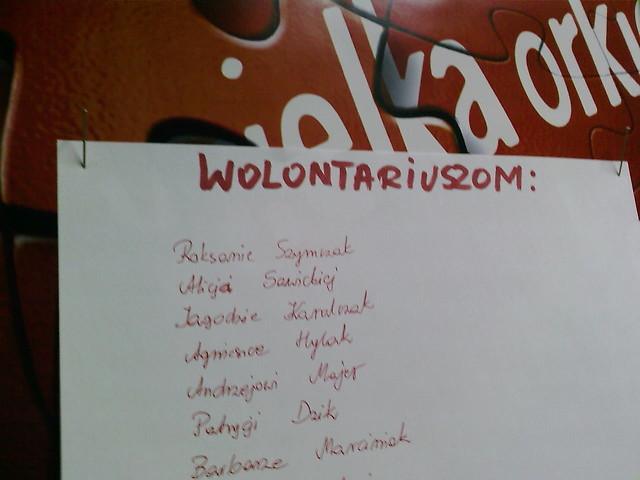 wielka orki
WOLONTARIUSZOM:
Roksanie Szymczak
Alicji Sawickiej
Jagodzie Karulczak
Agnieszce Hylak
Andrzejowi Majer
Patrycji Dzik
Barbarze Marciniak